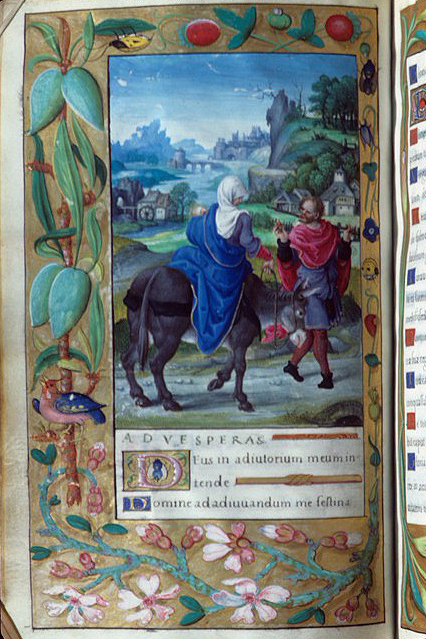 AD VESPERAS.
Deus in adiutorium meum in-
tende
Domine ad adiuvandum me festina